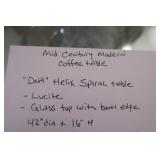 Mid Century Modern
Coffee table
"DNA" Helix Spiral table
- Lucite
- Glass top with bevel edge
42" dia x 16" H